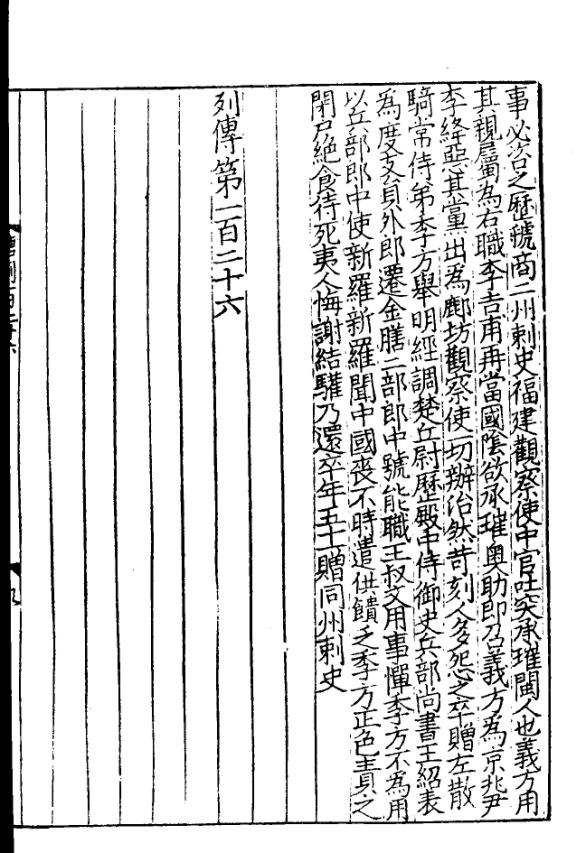 事必咨之歷虢商二州刺史福建觀察使中官吐突承璀閩人也義方用
其親屬為右職李吉甫再當國陰欲承璀奧助即召義方為京兆尹
李絳惡其黨出為鄜坊觀察使一切辦治然苛刻人多怨之卒贈左散
騎常侍弟季方舉明經調楚丘尉歷殿中侍御史兵部尚書王紹表
為度支員外郎遷金膳二部郎中號能職王叔文用事憚季方不為用
以兵部郎中使新羅新羅聞中國喪不時遣供饋乏季方正色責之
閉戶絕食待死夷人悔謝結驩乃還卒年五十一贈同州刺史
列傳第一百二十六
九